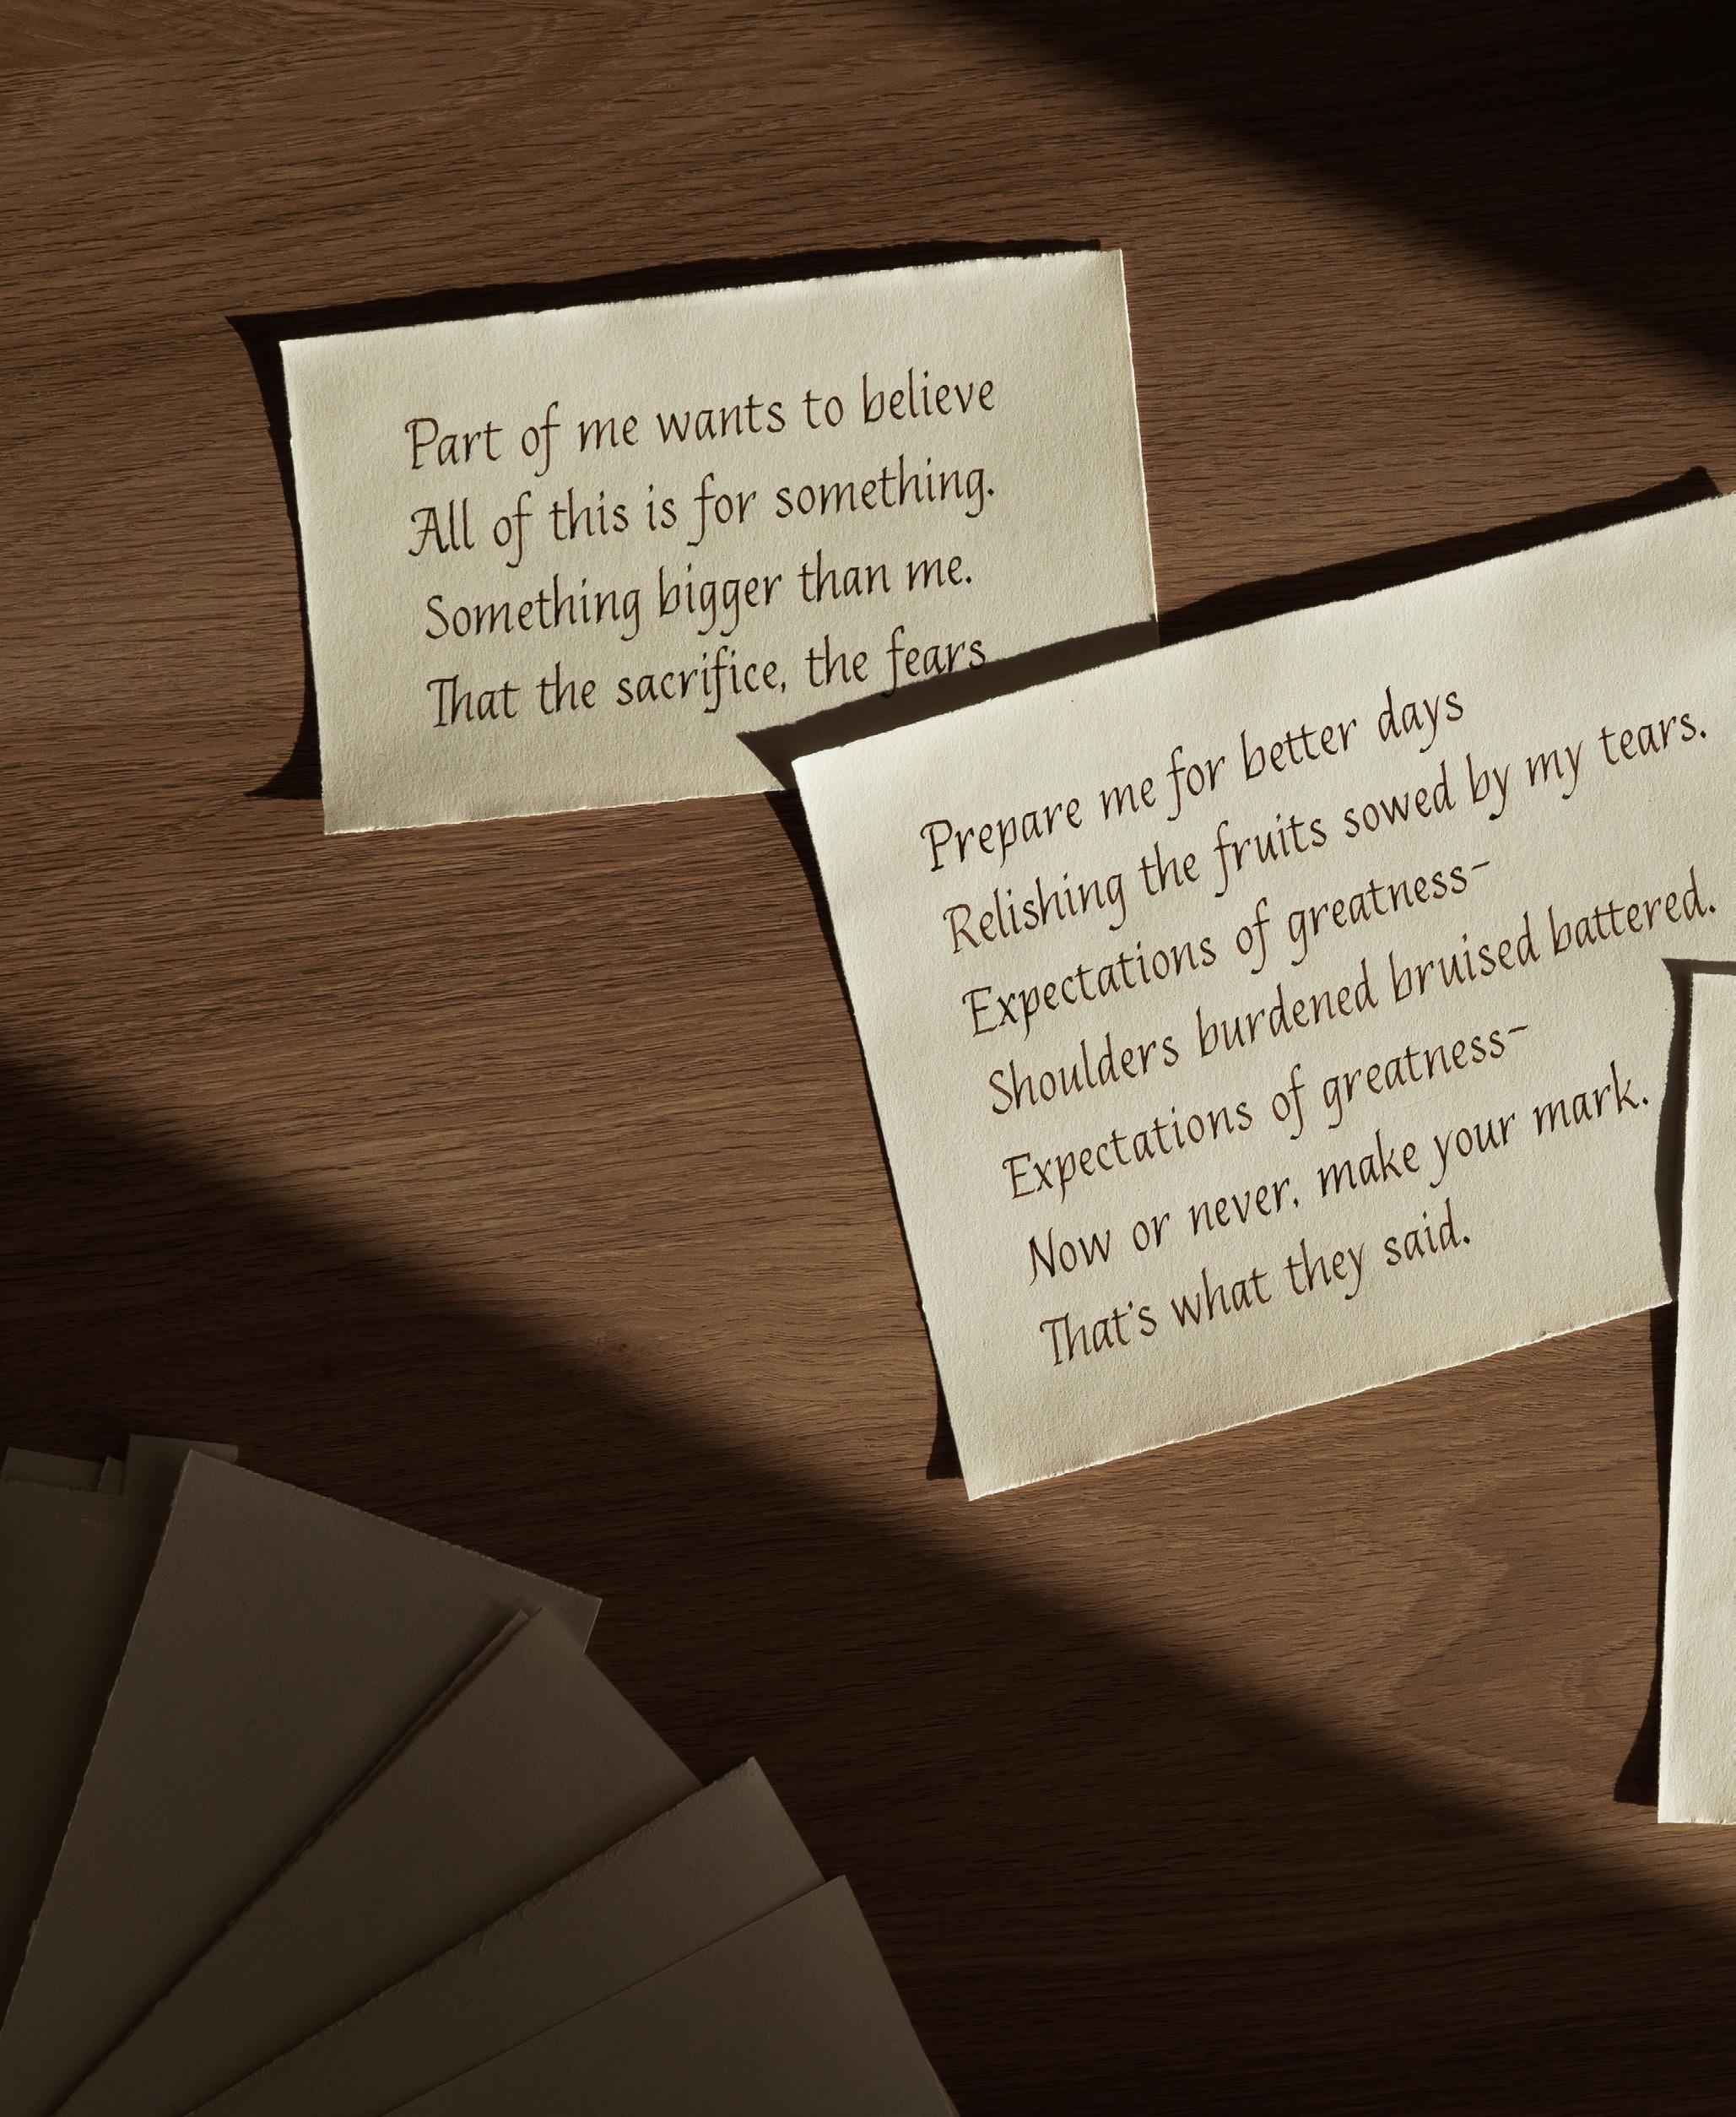 Part of me wants to believe
All of this is for something.
Something bigger than me.
That the sacrifice, the fears
Prepare me for better days
Relishing the fruits sowed by my tears.
Expectations of greatness-
Shoulders burdened bruised battered.
Expectations of greatness-
Now or never, make your mark.
That's what they said.